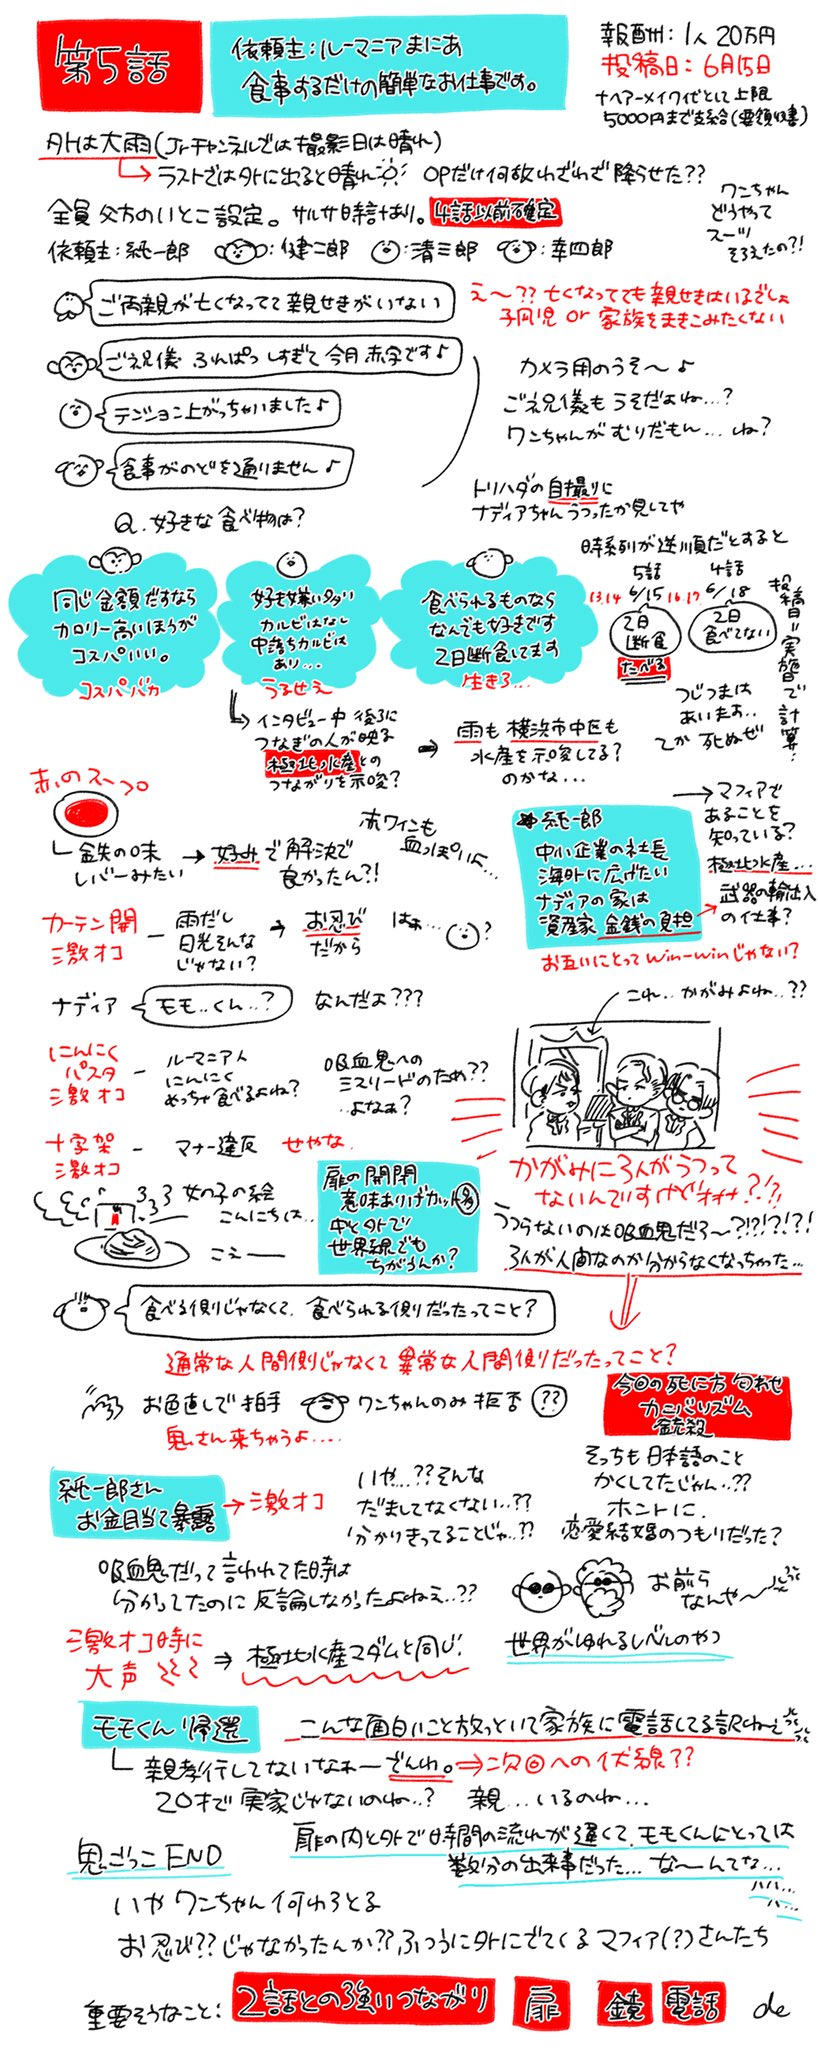 第5話
依頼主:ルーマニアまにあ
食事するだけの簡単なお仕事です。
報酬:1人20万円
投稿日:6月15日
ナヘアーメイク代として上限
5000円まで支給(要領収書)
外は大雨(Jrチャンネルでは撮影日は晴れ)
ラストでは外に出ると晴れ OPだけ何故わざわざ降らせた??
全員父方のいとこ設定。サルサ時計あり。4話以前確定
ワンちゃん
どうやって
スーツ
そろえたの?!
依頼主:純一郎 :健二郎 :清三郎 :幸四郎
ご両親が亡くなってて親せきがいない
え〜??亡くなってても親せきはいるでしょ
孤児 or 家族をまきこみたくない
ご祝儀ふんぱつしすぎて今月赤字です♪
テンション上がっちゃいました♪
食事がのどを通りません♪
カメラ用のうそ〜♪
ご祝儀もうそだよね...?
ワンちゃんがむりだもん...ね?
トリハダの自撮りに
ナディアちゃんうつったか見してや
Q.好きな食べ物は?
同じ金額だすなら
カロリー高いほうが
コスパいい。
コスパバカ
好き嫌い多タリ
カルビはなし
中落ちカルビは
あり...
うるせえ
食べられるものなら
なんでも好きです
2日断食してます
生きろ...
時系列が逆順だとすると
5話 4話
13.14 6/15 16.17 6/18
2日
断食
たべる
2日
食べてない
投稿日=実施日で計算!
つじつまは
あいます..
てか死ぬぜ
インタビュー中 後ろに
つなぎの人が映る
極北水産との
つながりを示唆?
雨も横浜市中区も
水産を示唆してる?
のかな...
赤のスープ
鉄の味
レバーみたい
好みで解決で
良かったん?!
赤ワインも
血っぽいよ...
純一郎
中小企業の社長
海外に広げたい
ナディアの家は
資産家 金銭の負担
マフィアで
あることを
知っている?
極北水産...
武器の輸出入
の仕事?
お互いにとってwin-winじゃない?
カーテン開
激オコ
雨だし
日光そんな
じゃない?
お忍び
だから
はぁ...?
ナディア モモ..くん..? なんだよ???
にんにく
パスタ
激オコ
ルーマニア人
にんにく
めっちゃ食べるよね?
吸血鬼への
ミスリードのため??
..よなぁ?
これ..かがみよね..??
十字架
激オコ
マナー違反 せやな
かがみに3人がうつって
ないんですけどォォォ?!?!
うつらないのは吸血鬼だろ〜?!?!?!?!
3人が人間なのか分からなくなっちゃった...
女の子の絵
こんにちは..
こえーー
扉の開閉
意味ありげカット多め
中と外で
世界線でも
ちがうんか?
食べる側じゃなくて、食べられる側だったってこと?
通常な人間側じゃなくて異常な人間側だったってこと?
お色直しで拍手 ワンちゃんのみ拒否 ??
鬼さん来ちゃうよ....
今回の死に方匂わせ
カニバリズム
銃殺
純一郎さん
お金目当て暴露
激オコ
いや...??そんな
だましてなくない..??
分かりきってることじゃ..??
そっちも日本語のこと
かくしてたじゃん..??
ホントに、
恋愛結婚のつもりだった?
吸血鬼だって言われてた時は
分かってたのに反論しなかったよねえ..??
お前ら
なんや〜
激オコ時に
大声
極北水産マダムと同じ!
世界がゆれるレベルのやつ
モモくん帰還
こんな面白いこと放っといて家族に電話してる訳ねーえ
親孝行してないなぁーでんわ。⇒次回への伏線??
20才で実家じゃないのね..? 親...いるのね...
鬼ごっこEND
扉の内と外で時間の流れが遅くて、モモくんにとっては
数分の出来事だった...な〜んてな...
ハハ...
ハ...
いやワンちゃん何わろとる
お忍び??じゃなかったんか??ふつうに外にでてくるマフィア(?)さんたち
重要そうなこと: 2話との強いつながり 扉 鏡 電話 de